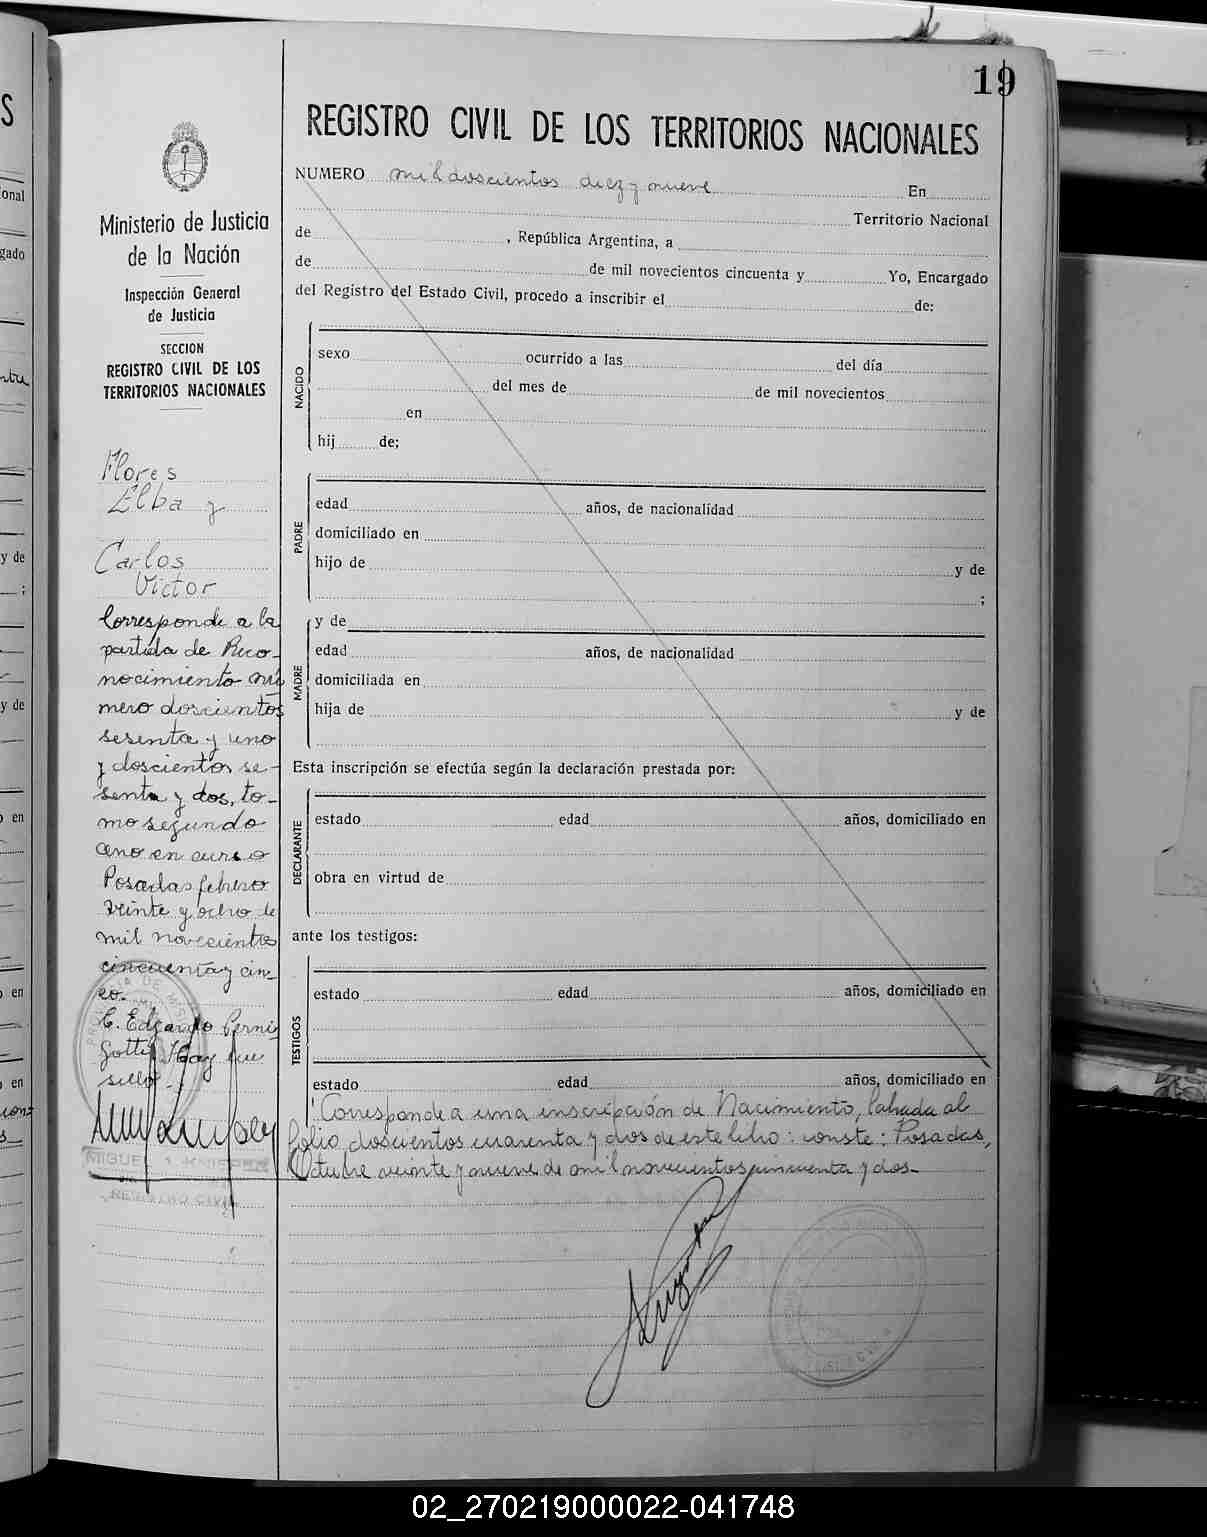 19
REGISTRO CIVIL DE LOS TERRITORIOS NACIONALES
NUMERO mil doscientos diez y nueve En
Territorio Nacional
de , República Argentina, a
de de mil novecientos cincuenta y Yo, Encargado
del Registro del Estado Civil, procedo a inscribir el de:
NACIDO
sexo ocurrido a las del día
del mes de de mil novecientos
en
hij de;
PADRE
edad años, de nacionalidad
domiciliado en
hijo de y de
;
MADRE
y de
edad años, de nacionalidad
domiciliada en
hija de y de
Esta inscripción se efectúa según la declaración prestada por:
DECLARANTE
estado edad años, domiciliado en
obra en virtud de
ante los testigos:
TESTIGOS
estado edad años, domiciliado en
estado edad años, domiciliado en
Corresponde a una inscripción de Nacimiento, labrada al
folio doscientos cuarenta y dos de este libro: conste: Posadas,
Octubre veinte y nueve de mil novecientos cincuenta y dos-
Ministerio de Justicia
de la Nación
Inspección General
de Justicia
SECCION
REGISTRO CIVIL DE LOS
TERRITORIOS NACIONALES
Flores
Elba y
Carlos
Victor
Corresponde a la
partida de Reco-
nocimiento nú
mero doscientos
sesenta y uno
y doscientos se-
senta y dos, to-
mo segundo
año en curso
Posadas febrero
veinte y ocho de
mil novecientos
cincuenta y cin-
co.
C. Edgardo Perni
gotti. Hay un
sello.
REGISTRO CIVIL
S
onal
gado
y de
;
y de
en
en
en
02_270219000022-041748